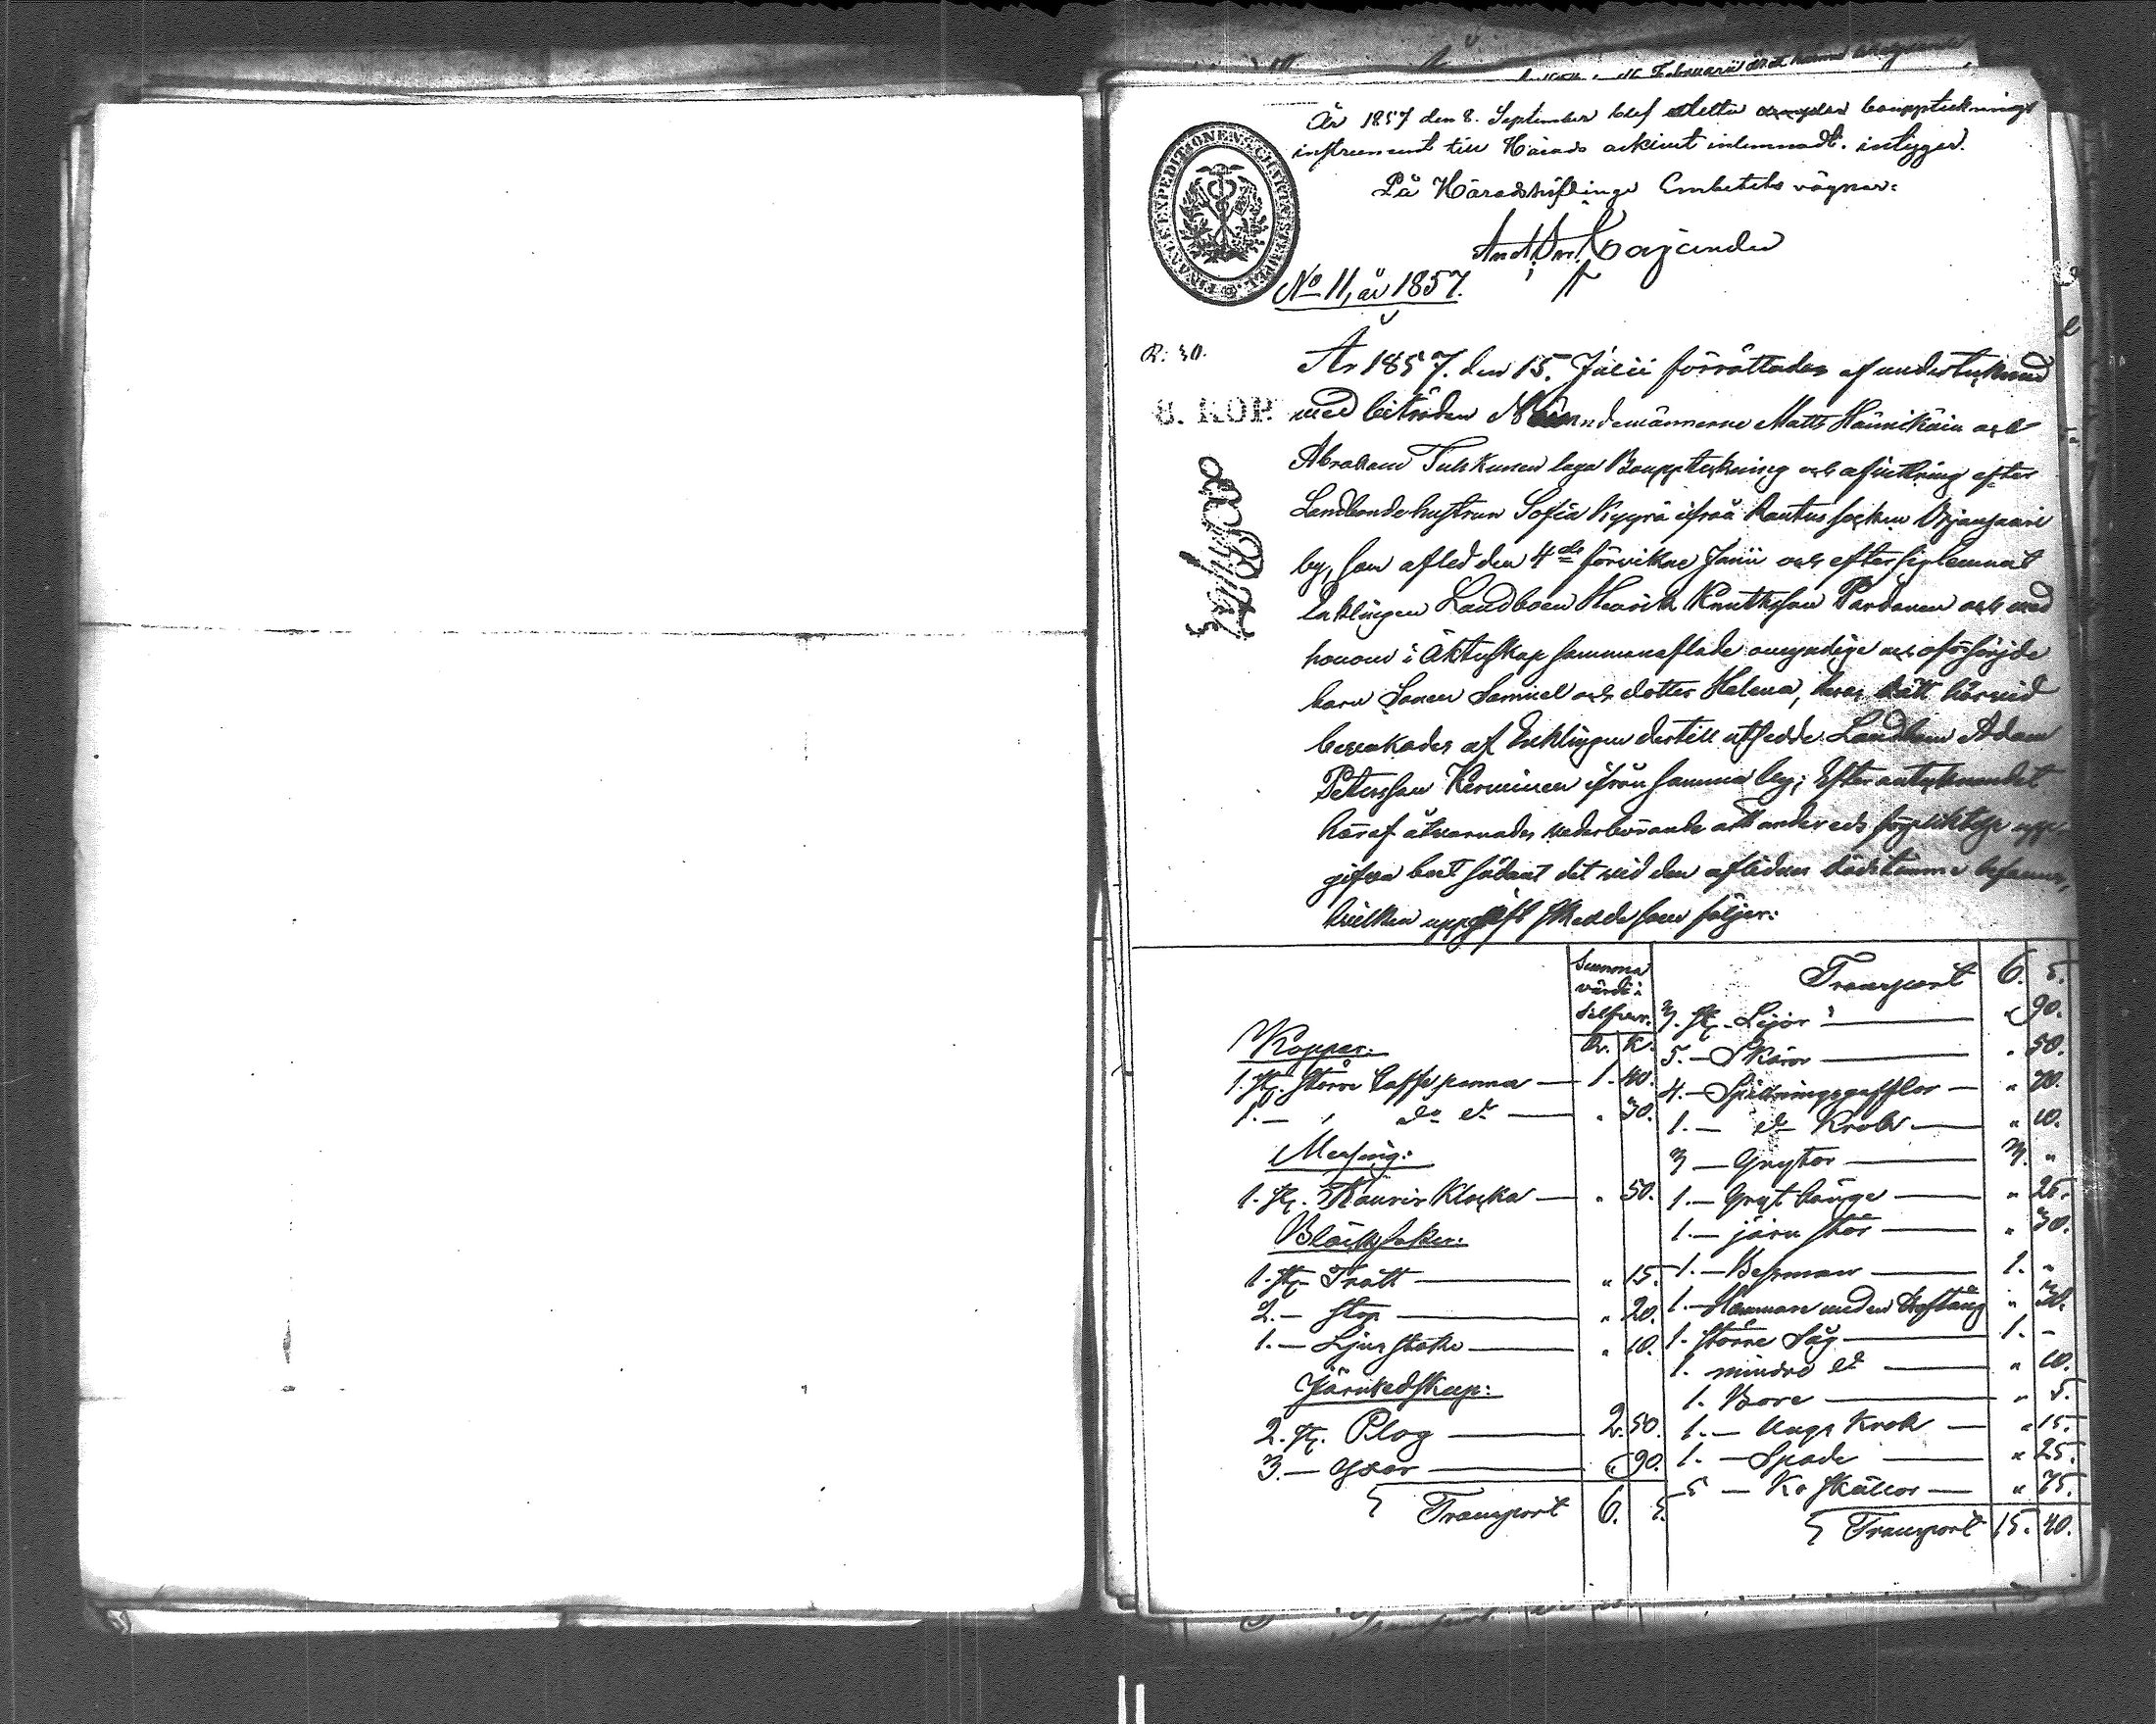 År 1857 den 8. September blef detta bouppteknings
instrument till Härads arkivet inlemnadt. intygger.
På Häradshöfdinge Embetets vägnar:
FINANCE EXPEDITIONENS CHARTÆ STEMPEL
No 11, år 1857.
R: 30.
8. KOP.
År 1857. den 15. Julii förrättades af undertecknad
med biträden Nämndemännerne Matts Hännikäin och
Abraham Tuhkunen laga Bouppteckning och afvittring efter
Landbondehustrun Sofia Kyyrä ifrån Rautus socken Orjansaari
by, som afled den 4de förvikne Junii och efter sig lemnat
Enklingen Landboen Henrik Knutsson Pardanen och med
honom i Äktenskap sammanaflade omyndige och oförsörjde
barn Sonen Samuel och dotter Helena, deras rätt härvid
bevakades af Enklingen dertill utsedde Landboen Adam
Petersson Kerminen ifrån samma by; Efter antecknandet
häraf åtvarnades vederbörande att under eds förpliktelse upp-
gifva boet sådant det vid den aflidnas dödstimme befanns,
hvilken uppgift skedde som följer:
Summa
värde i
Silfver.
R. K.
Koppar:
1. st. större Caffepanna — 1. 40.
1. — , do do — „ 30.
Messing:
1. st. Klocka — „ 50.
Bläcksaker:
1. st. Tratt — „ 15.
2. — Stop — „ 20.
1. — Ljusstake — „ 10.
Järnredskap:
2. st. Plog — 2. 50.
3. — Yxor — „ 90.
Transport 6. 5.
Transport 6. 5.
3. st. Lijor — „ 90.
5. — Skäror — „ 50.
4. — Spisningsgafflor — „ 70.
1. — do Krok — „ 10.
3 — Grytor — 3. „
1. — Gryt bänge — „ 25.
1. — järn stör — „ 30.
1. — Bessman — 1. „
1. — Hammare med en Hoftång „ 30.
1. större Såg — 1. -
1. mindre do — „ 10.
1. Bore — „ 5.
1. — Ungs Krok — „ 15.
1. — Spade — „ 25.
5 — Ko skällor — „ 75.
Transport 15. 40.